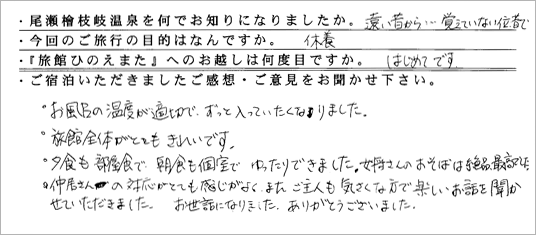 ・尾瀬檜枝岐温泉を何でお知りになりましたか。遠い昔から…覚えていない位昔です
・今回のご旅行の目的はなんですか。休養
・『旅館ひのえまた』へのお越しは何度目ですか。はじめてです。
・ご宿泊いただきましたご感想・ご意見をお聞かせ下さい。
・お風呂の温度が適切で、ずっと入っていたくなりました。
・旅館全体がとてもきれいです。
・夕食も部屋食で朝食も個室でゆったりできました。女将さんのおそばは絶品、最高でした
・仲居さんの対応がとても感じがよく、また、ご主人も気さくな方で楽しいお話を聞か
せていただきました。お世話になりました。ありがとうございました。